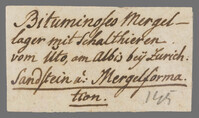 Bituminoses Mergel-
lager mit Schalthieren
vom Uto, am Albis bey Zürich.
Sandstein u. Mergelforma-
tion.